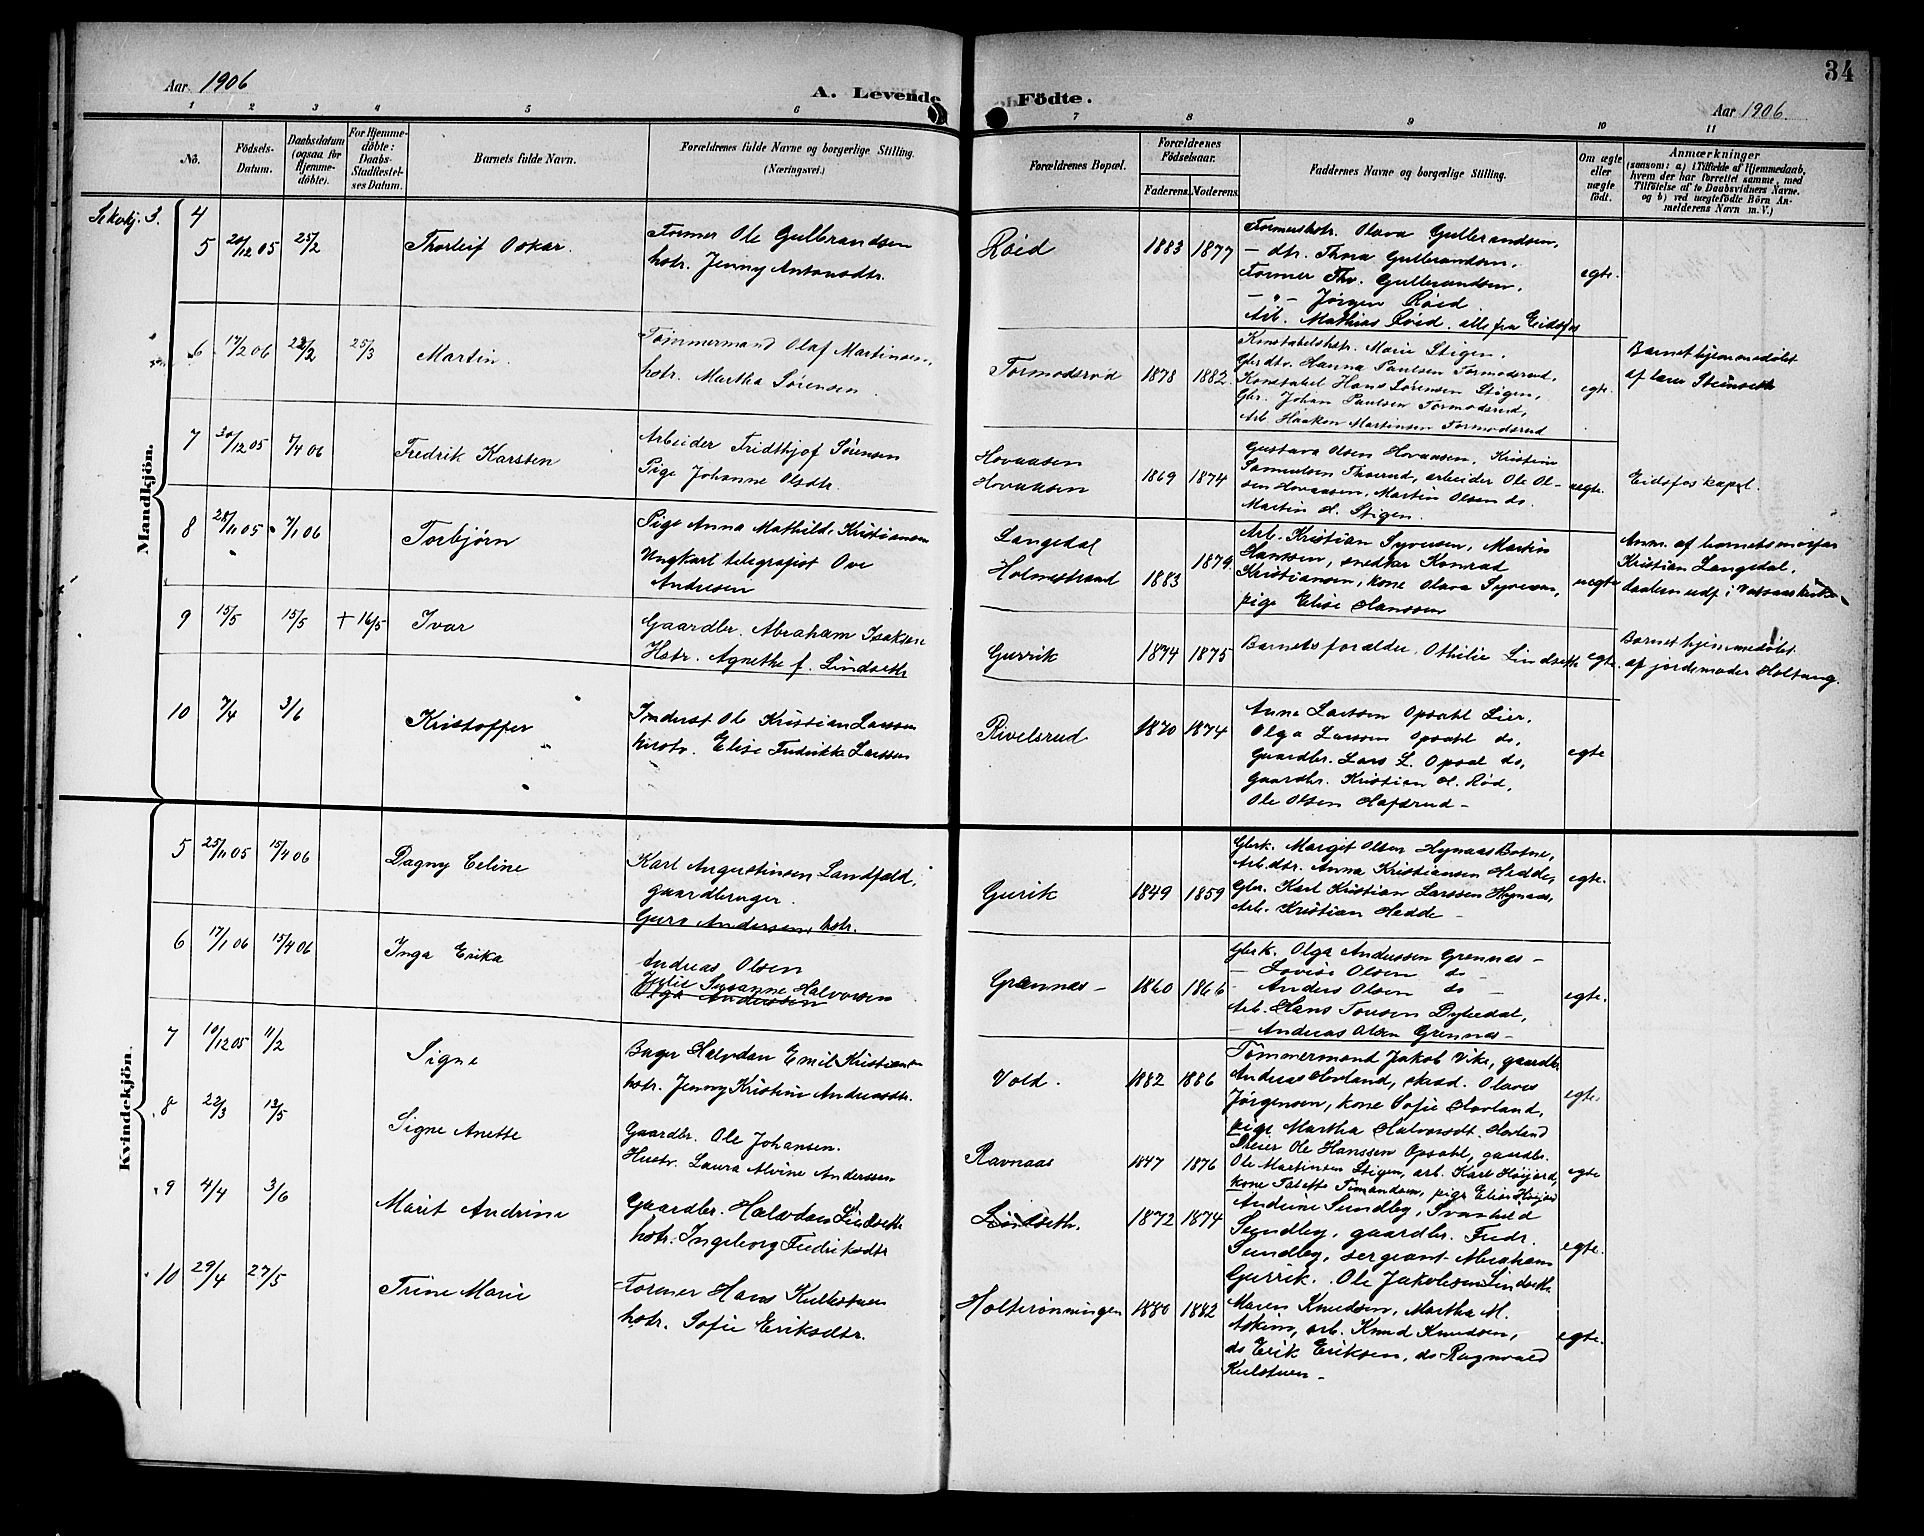 34
Aar 1906
A. Levende Födte.
Aar 1906.
1 2 3 4 5 6 7 8 9 10 11
No.
Födsels-Datum.
Daabsdatum (ogsaa for Hjemme-döbte).
For Hjemme-döbte: Daabs-Stadfæstel-ses Datum.
Barnets fulde Navn.
Forældrenes fulde Navne og borgerlige Stilling.
(Næringsvei.)
Forældrenes Bopæl.
Forældrenes Födselsaar.
Faderens. Moderens.
Faddernes Navne og borgerlige Stilling.
Om ægte eller uægte födt.
Anmærkninger
(saasom: a) i Tilfælde af Hjemmedaab,
hvem der har forrettet samme, med
Tilföielse af to Daabsvidners Navne.
og b) ved uægtefödte Börn An-
melderens Navn m. V.)
Mandkjön.
4
5 20/12 05 25/2 Thorleif Oskar.
Former Ole Gulbrandsen
hstr. Jenny Antonsdtr.
Röid 1883 1877
Formershstr. Olava Gulbrandsen,
— dtr. Thora Gulbrandsen,
Former Thv. Gulbrandsen,
— " — Jørgen Röid
Arb. Mathias Röid. alle fra Eidsfos
egte.
6 17/2 06 22/2 25/3 Martin.
Tømmermand Olaf Martinsen,
hstr. Martha Sørensen.
Tormodsrød 1878 1882.
Konstabelshstr. Marie Stigen,
Gbr.dtr. Hanna Paulsen Tormodsrud,
Konstabel Hans Sørensen Stigen,
Gbr. Johan Paulsen Tormodsrud,
Arb Haakon Martinsen Tormodsrud
egte.
Barnet hjemmedøbt
af lærer Steinseth
7 30/12 05 7/4 06 Fredrik Karsten
Arbeider Fridthjof Sørensen
Pige Johanne Olsdtr.
Hovaasen
Hovaasen
1869 1874
Gustava Olsen Hovaasen, Kristine
Samuelsen Thorrud, arbeider Ole Ol-
sen Hovaasen, Martin Olsen do.
Martin H. Stigen.
uegte.
Eidsfos kapel.
8 28/11 05 7/1 06 Torbjørn
Pige Anna Mathild. Kristiansen
Ungkarl telegrafist Ove
Andresen
Langedal
Holmestrand
1883 1879.
Arb. Kristian Syversen, Martin
Hanssen, snedker Konrad
Kristiansen, kone Olava Syversen,
pige Elise Hanssen
uegte
Anm. af barnets morfar
Kristian Langedal,
daaben udf. i Vassaas kirke
9 15/5 15/5 + 16/5 Ivar
Gaardbr. Abraham Isaksen
Hstr. Agnethe f. Lindseth
Gurrik 1874 1875
Barnets forældre, Othilie Lindseth
egte.
Barnet hjemmedøbt
af jordemoder Holtung.
10 7/4 3/6 Kristoffer
Inderst Ole Kristian Larssen
hustr. Elise Fredrikke Larssen
Rivelsrud 1870 1874
Anne Larsen Opsahl Lier,
Olga Larssen Opsahl do,
Gaardbr. Lars L. Opsal do,
gaardbr. Kristian H. Rød,
Ole Olsen Hafsrud —
egte
Kvindekjön.
5 25/11 05 15/4 06 Dagny Celine
Karl Augustinsen Landfald,
gaardbruger.
Guro Andersen, hstr.
Gurik 1849 1859
Gbrk. Margit Olsen Hynaas Botne,
Arb.dtr. Anna Kristiansen Hedde,
Gbr. Karl Kristian Larssen Hynaas,
Arb. Kristian Hedde —
egte.
6 17/1 06 15/4 06 Inga Erika
Andreas Olsen
Julie Susanne Halvorsen
Olga Anderssen
Grennes — 1860 1866
Gbrk. Olga Anderssen Grennes —
— Lovise Olsen do —
— Anders Olsen do —
Arb. Hans Tovsen Dybedal,
— Andreas Olsen Grennes —
egte.
7 10/12 05 11/2 Signe
Bager Halvdan Emil Kristiansen
hstr. Jenny Kristine Andreasdtr.
Vold. 1882 1886
Tømmermand Jakob Vike, gaardbr.
Andreas Hovland, skræd. Olaves
Jørgensen, kone Sofie Hovland,
pige Martha Halvorsdt. Hovland
egte.
8 22/3 13/5 Signe Anette
Gaardbr. Ole Johansen.
Hustr. Laura Alvine Anderssen
Ravnaas 1847 1876
Ole Hanssen Opsahl, gaardbr.
Ole Martinsen Stigen, arb. Karl Höijord,
egte
9 4/4 3/6 Marit Andrine
Gaardbr. Halvdan Lindseth
hstr. Ingeborg Fredriksdtr
Lindseth. 1872 1874
Andrine Sundby, Svanhild
Sundby, gaardbr. Fredr.
Sundby, sergeant Abraham
Gurrik. Ole Jakobsen Lindseth
egte.
10 29/4 27/5 Trine Marie
Former Hans Kulbstuen
hstr. Sofie Eriksdtr.
Holterønningen 1880 1882
Maren Knudsen, Martha M.
Askim, arb. Knud Knudsen,
do Erik Eriksen, do Ragnvald
Kulstuen —
egte.